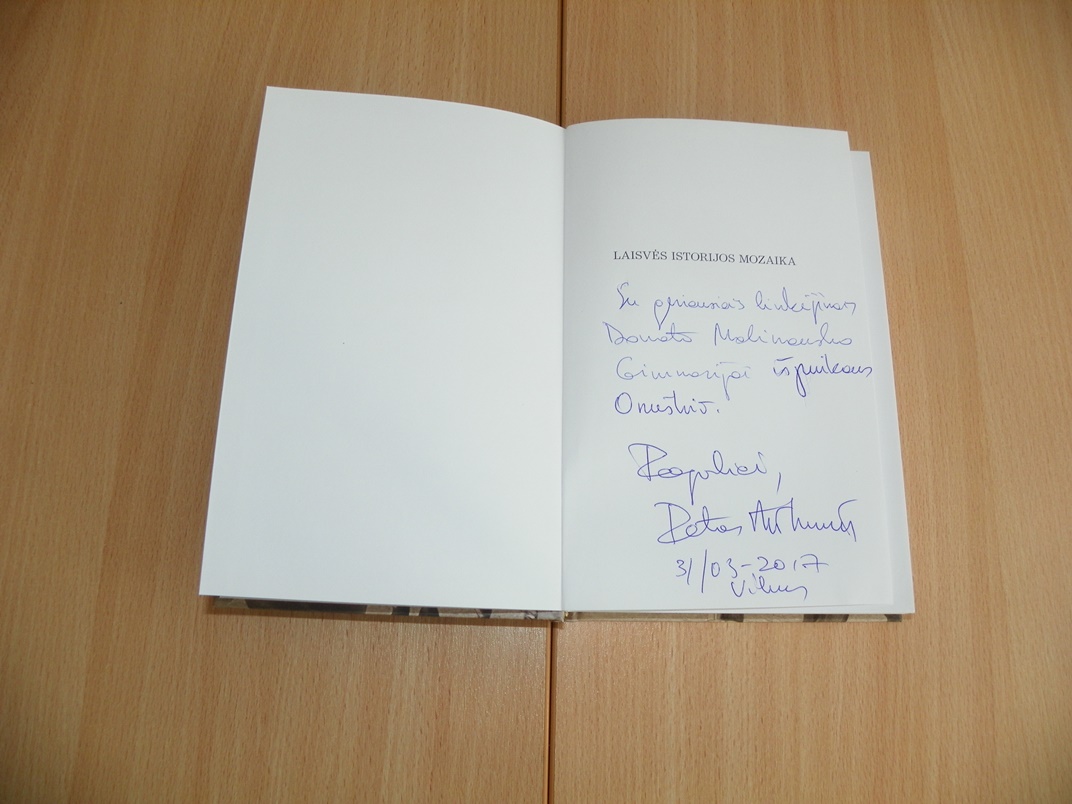 LAISVĖS ISTORIJOS MOZAIKA
Su geriausiais linkėjimais
Donato Malinausko
Gimnazijai iš puikaus
Onuškio.
Pagarbiai,
31/03-2017
Vilnius